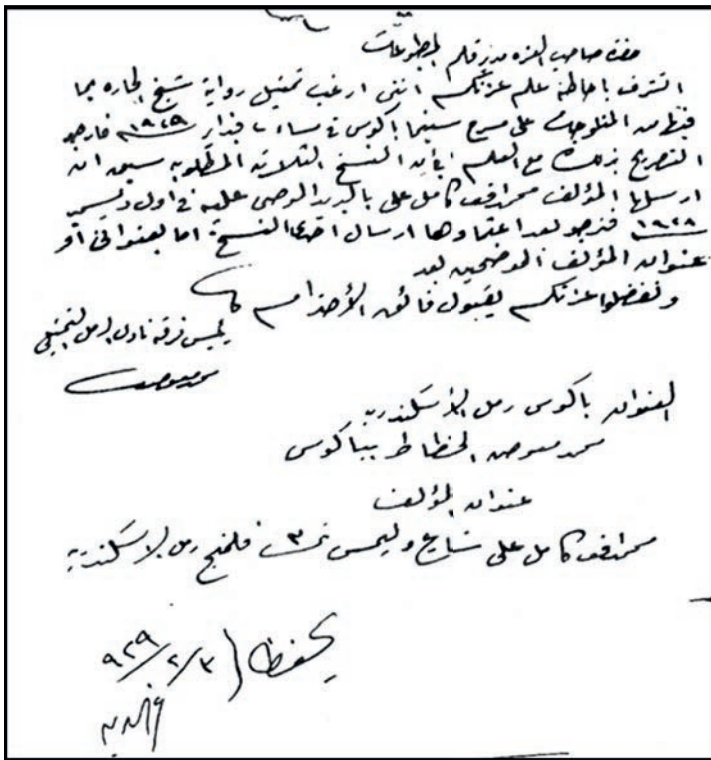 حضرة صاحب العزه مدير قلم المطبوعات
اتشرف باحاطة علم عزتكم اننى ارغب تمثيل رواية شيخ الحاره بما
فيها من المنلوجات على مسرح سينما باكوس فى مساء فبراير ١٩٢٩ فارجو
التصريح بذلك مع العلم بأن النسخ الثلاثة المطلوبه سبق ان
ارسلها المؤلف محمد كامل على بالبريد الموصى عليه فى اول ديسمبر
١٩٢٨ فنرجو بعد اعتمادها ارسال احدى النسخ اما بعنوانى او
عنوان المؤلف الموضحين بعد
وتفضلوا عزتكم بقبول فائق الأحترام
رئيس فرقة نادى الرمل التمثيلى
محمد معوض
العنوان باكوس رمل الأسكندريه
محمد معوض الخطاط بباكوس
عنوان المؤلف
محمد كامل على شارع وليمس نمرة ٣ فلمنج رمل الاسكندريه
يحفظ
٣/٢/٩٢٩